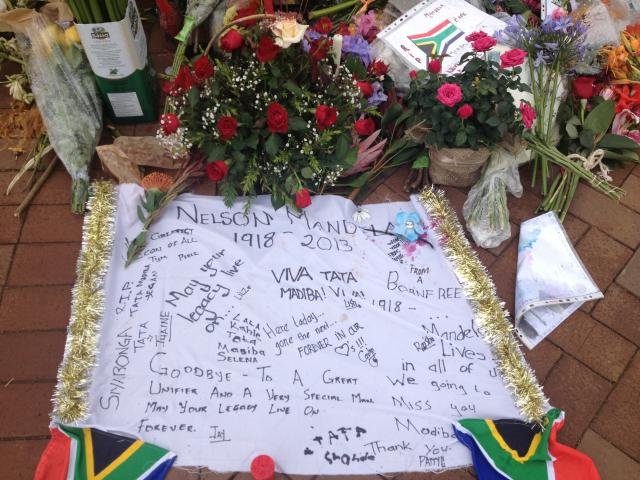 NELSON MANDELA
1918 - 2013
GREATEST
ICON OF ALL
TIME
May your
legacy live
on
VIVA TATA
MADIBA! Viva
FROM
A
BORNFREE
1918 - ......
SIYABONGA R.I.P
TATA
TATA
Here today...
gone the next...
FOREVER IN OUR
♡'s!!!
Tata
Madiba
SELENA
Mandela
Lives
in all of us
We going to
Miss you
Madiba
Thank you
GOODBYE - TO A GREAT
UNIFIER AND A VERY SPECIAL MAN
MAY YOUR LEGACY LIVE ON
FOREVER.
JAY
TATA